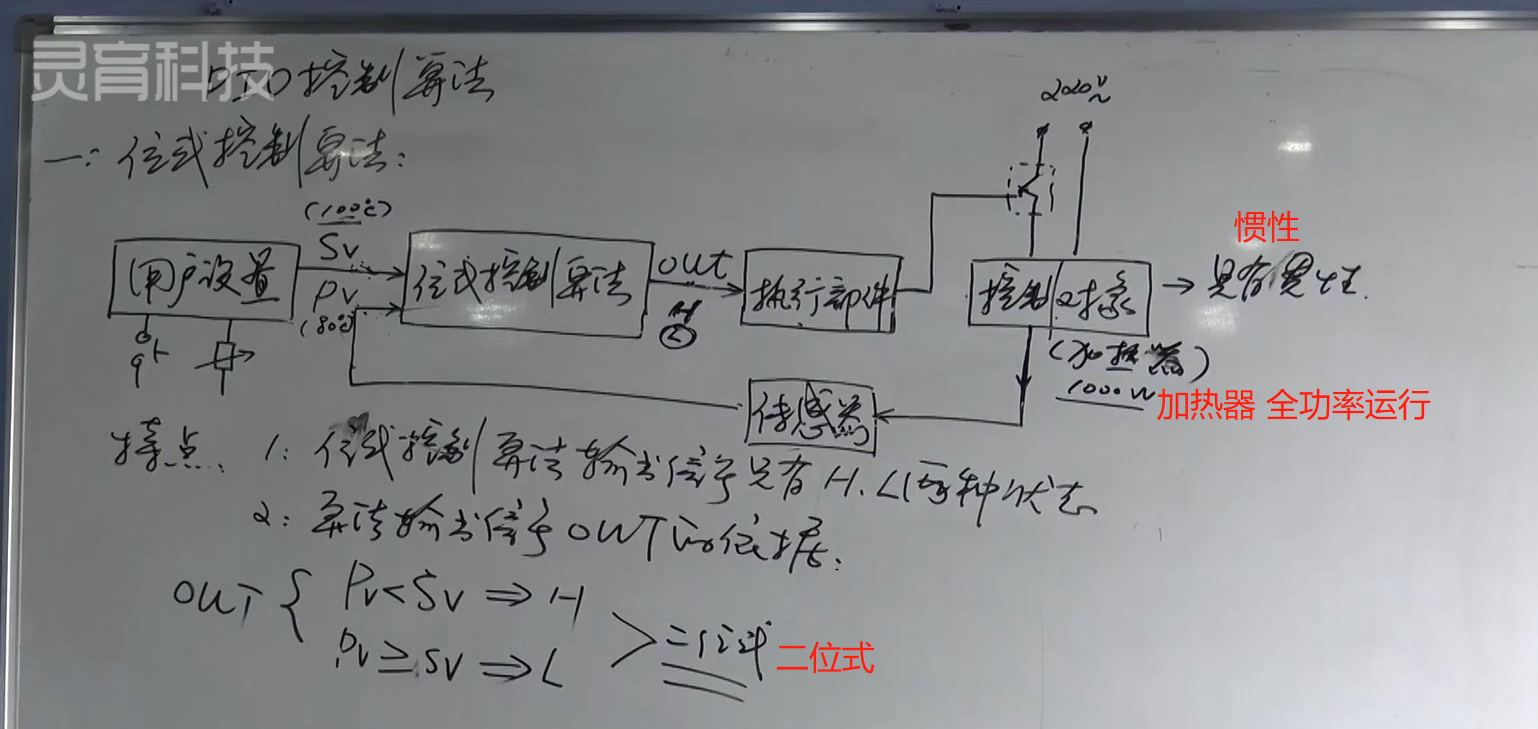 灵育科技
PID控制算法
一：位式控制算法：
220V~
(100℃)
用户设置
SV
PV
(80℃)
位式控制算法
OUT
执行部件
控制对象
惯性
具有惯性.
(加热器)
1000W
加热器 全功率运行
传感器
特点、1：位式控制算法输出信号只有H.L两种状态
2：算法输出信号OUT的依据：
OUT { PV<SV ⇒ H
PV≥SV ⇒ L
> 二位式
二位式